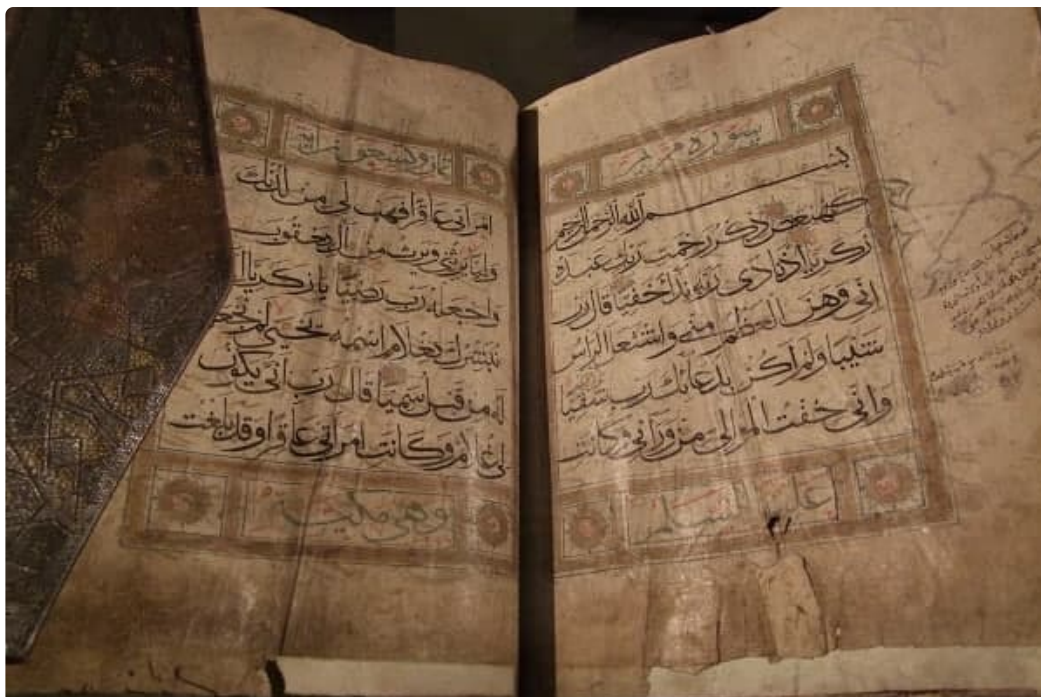 سورة مريم
بسم الله الرحمن الرحيم
كهيعص ذكر رحمت ربك عبده
زكريا إذ نادى ربه نداء خفيا قال رب
اني وهن العظم مني واشتعل الراس
شيبا ولم اكن بدعائك رب شقيا
واني خفت الموالي من وراني وكانت
عليها السلام
ثمان وتسعون اية
امراتي عاقرا فهب لي من لدنك
وليا يرثني ويرث من ال يعقوب
واجعله رب رضيا يا زكريا انا
نبشرك بغلام اسمه يحيى لم نجعل
له من قبل سميا قال رب انى يكون
لي غلام وكانت امراتي عاقرا وقد بلغت
وهي مكية